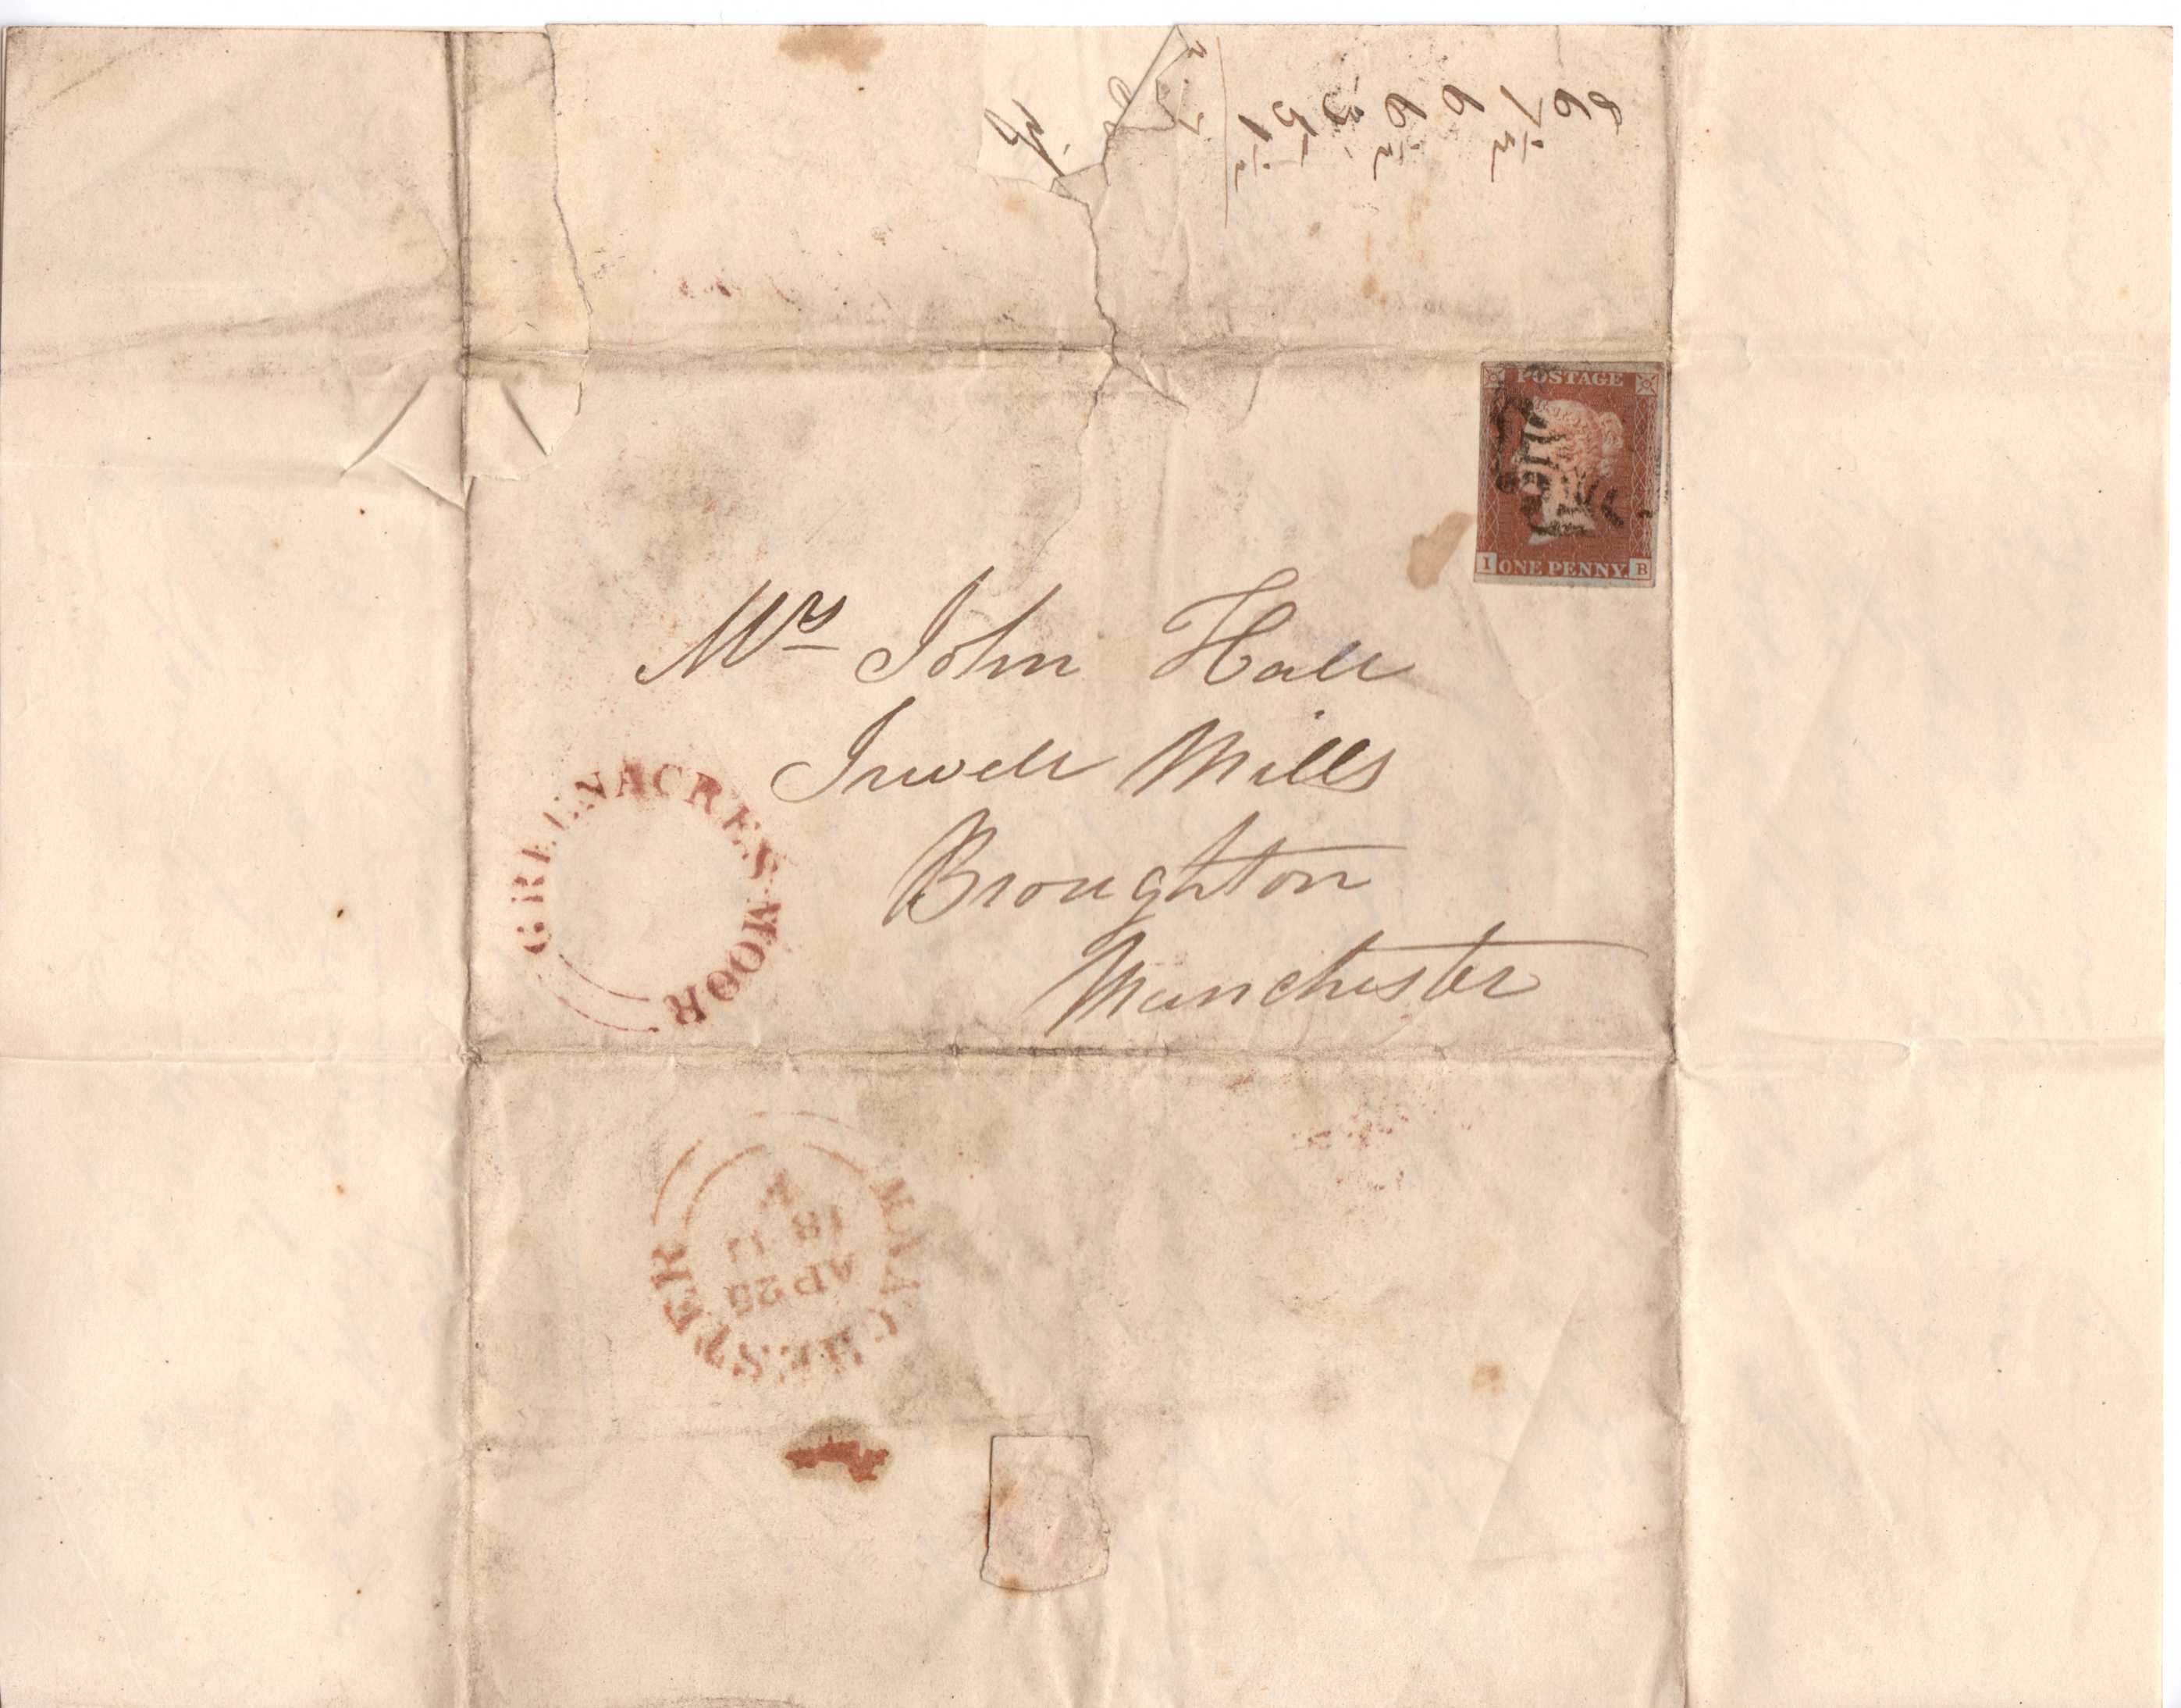 POSTAGE
I ONE PENNY. B
Mrs John Hall
Irwell Mills
Broughton
Manchester
GREENACRES MOOR
MANCHESTER
AP 28